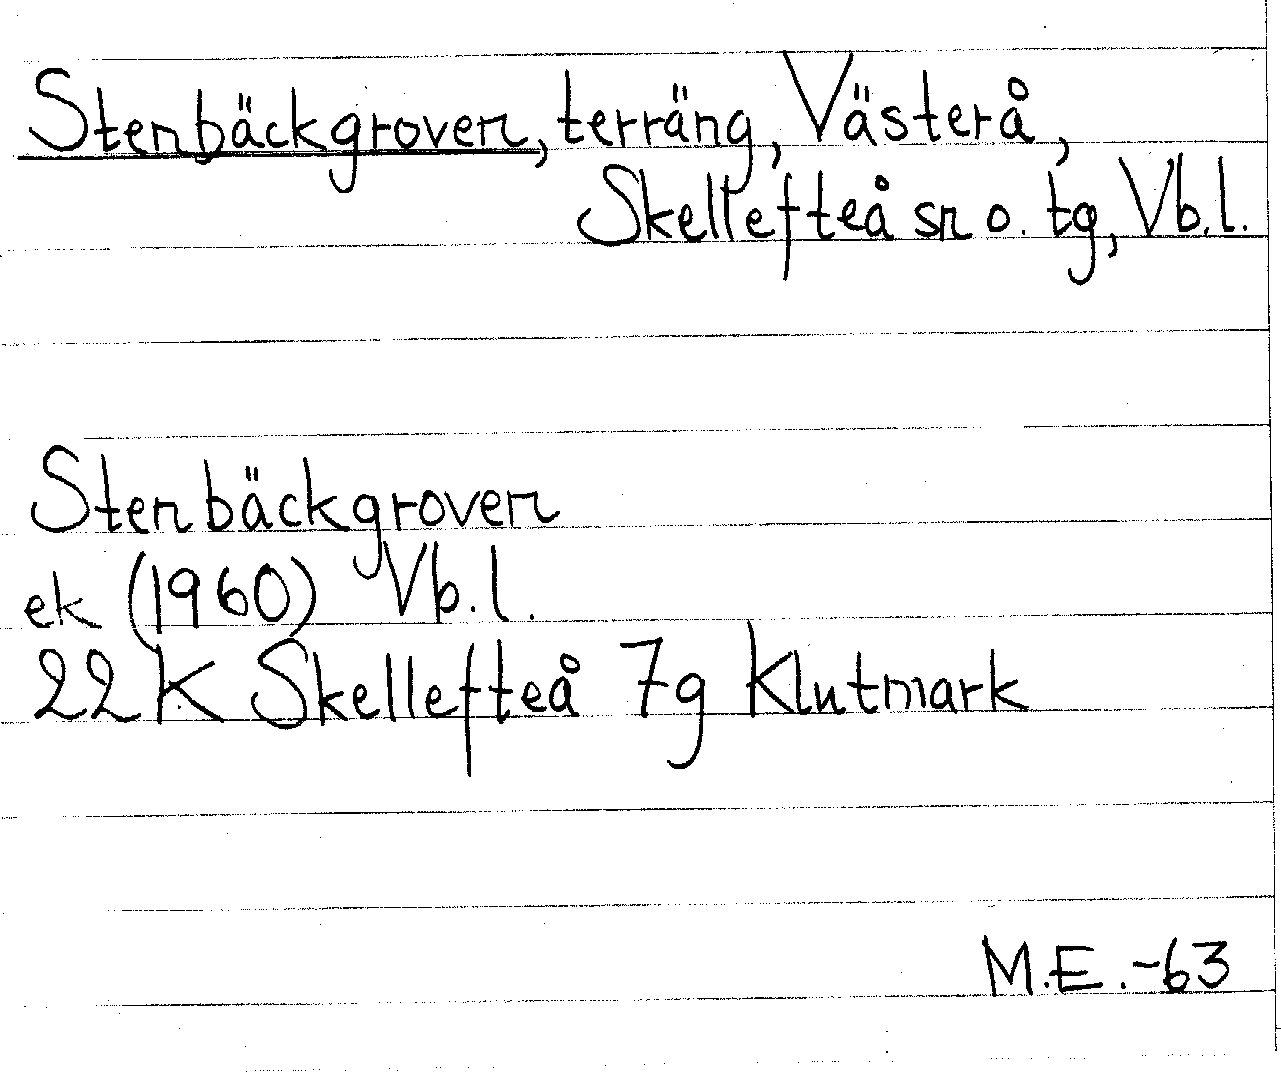 Stenbäckgroven, terräng, Västerå,
Skellefteå sn o. tg, Vb.l.
Stenbäckgroven
ek (1960) Vb.l.
22K Skellefteå 7g Klutmark
M.E.-63